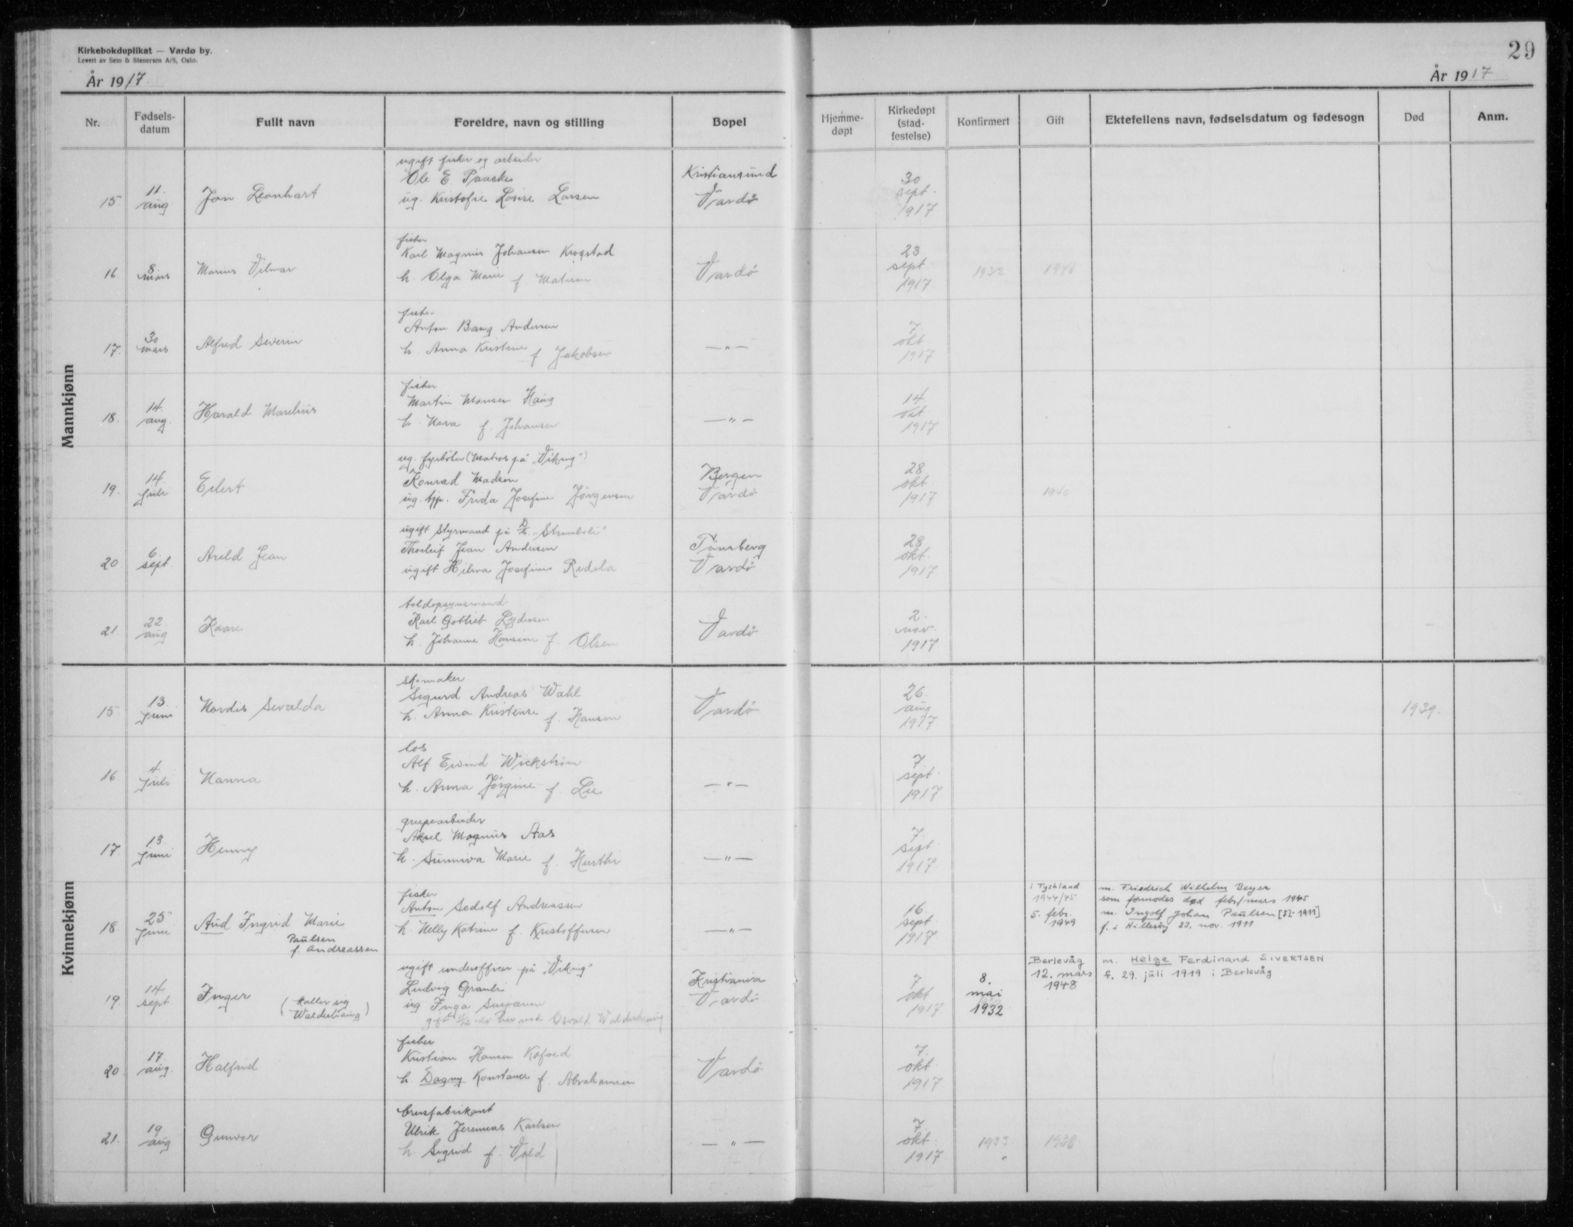 Kirkebokduplikat — Vardø by.
Levert av Sem & Stenersen A/S, Oslo.
År 1917
29
År 1917
Nr.
Fødsels-
datum
Fullt navn
Foreldre, navn og stilling
Bopel
Hjemme-
døpt
Kirkedøpt
(stad-
festelse)
Konfirmert
Gift
Ektefellens navn, fødselsdatum og fødesogn
Død
Anm.
Mannkjønn
15
11.
aug
Jon Leonhart
ugift fisker og arbeider
Ole E.
ug. Kristofie Lovise Larsen
Kristiansund
Vardø
30
sept.
1917
16
8.
mars
Marius Vilmar
fisker
Karl Magnus Johansen Krogstad
h. Olga Marie f. Matisen
Vardø
23
sept.
1917
1932
1948
17.
30
mars
Alfred Severin
fisker
Anton Bang Andersen
h. Anna Kristine f. Jakobsen
— " —
7.
okt
1917
18.
14.
aug.
Harald Marelius
fisker
Martin Monsen Haug
h. Nora f. Johansen
— " —
14
okt
1917
19.
14
juli
Eilert
ug. fyrbøter (Matros på "Viking")
Konrad Madsen
ug. tjp. Frida Josefine Jørgensen
Bergen
Vardø
28
okt
1917
1940
20
6.
sept.
Arild Jean
ugift Styrmand på D/S "Stromboli"
Thorleif Jean Andersen
ugift Helma Josefine Redola
Tønsberg
Vardø
28
okt.
1917
21
22
aug
Kaare
toldopsynsmand
Karl Gotlieb Lydersen
h. Johanne Hansine f. Olsen
Vardø
2.
nov.
1917
Kvinnekjønn
15
13.
juni
Nordis Sevalda
skomaker
Sigurd Andreas Wahl
h. Anna Kristense f. Hansen
Vardø
26.
aug
1917
1939.
16
4.
juli
Nanna
los
Alf Eivind Wickstrøm
h. Anna Jørgine f. Lie
— " —
7.
sept.
1917
17
13
juni
Henny
grupearbeider
Aksel Magnus Aas
h. Sunniva Marie f.
— " —
7
sept
1917
18
25
juni
Aud Ingrid Marie
Paulsen
f. Andreassen
fisker
Anton Sedolf Andreassen
h. Nelly Katrine f. Kristoffersen
— " —
16.
sept
1917
i Tyskland
1944/45
5. febr.
1949
m. Friedrich Wilhelm Beyer
som formodes død febr/mars 1945
m. Ingolf Johan Paulsen
f. i Hillesøy 23. nov. 1911
19
14
sept
Inger
(Kaller seg
Walderhaug)
ugift underofficer på "Viking"
Ludvig
ug Inga
Kristiania
Vardø
7
okt
1917
8.
mai
1932
Berlevåg
12. mars
1948
m. Helge Ferdinand SIVERTSEN
f. 29. juli 1919 i Berlevåg
20.
17.
aug.
Halfrid
fisker
Kristian Hansen Kofoed
h. Dagny Konstanse f. Abrahamsen
Vardø
7.
okt
1917
21.
19
aug
Gunvor
brusfabrikant
Ulrik Jeremias Karlsen
h. Sigrid f. Vold
— " —
7.
okt.
1917
1933
1938